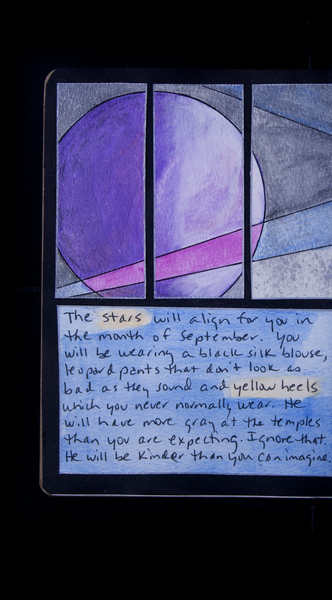 The stars will align for you in
the month of September. You
will be wearing a black silk blouse,
leopard pants that don't look as
bad as they sound and yellow heels
which you never normally wear. He
will have more gray at the temples
than you are expecting. Ignore that.
He will be kinder than you can imagine.